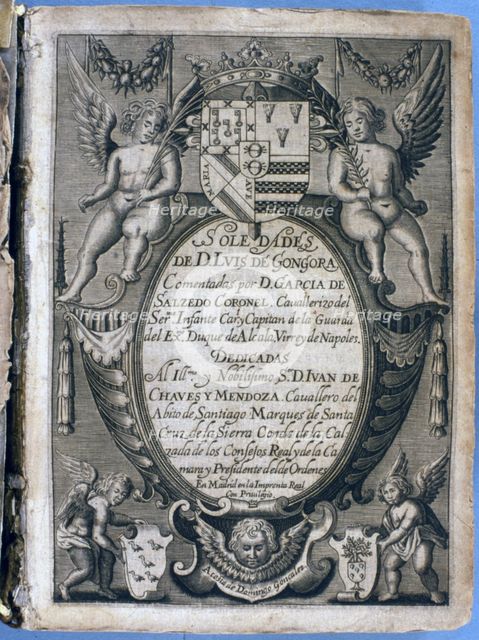 MARIA
AVE
SOLEDADES
DE D. LVIS DE GONGORA
Comentadas por D. GARCIA DE
SALZEDO CORONEL. Cavallerizo del
Ser.mo Infante Car. y Capitan de la Guarda
del Ex.mo Duque de Alcala, Virrey de Napoles.
DEDICADAS
Al Ill.mo y Nobilisimo S.r D. IVAN DE
CHAVES Y MENDOZA. Cavallero del
Abito de Santiago Marques de Santa
Cruz de la Sierra Conde de la Cal
zada de los Consejos Real y de la Ca
mara y Presidente del de Ordenes
En Madrid en la Imprenta Real
Con Privilegio.
A costa de Domingo Gonçalez.
Heritage
Heritage
Heritage